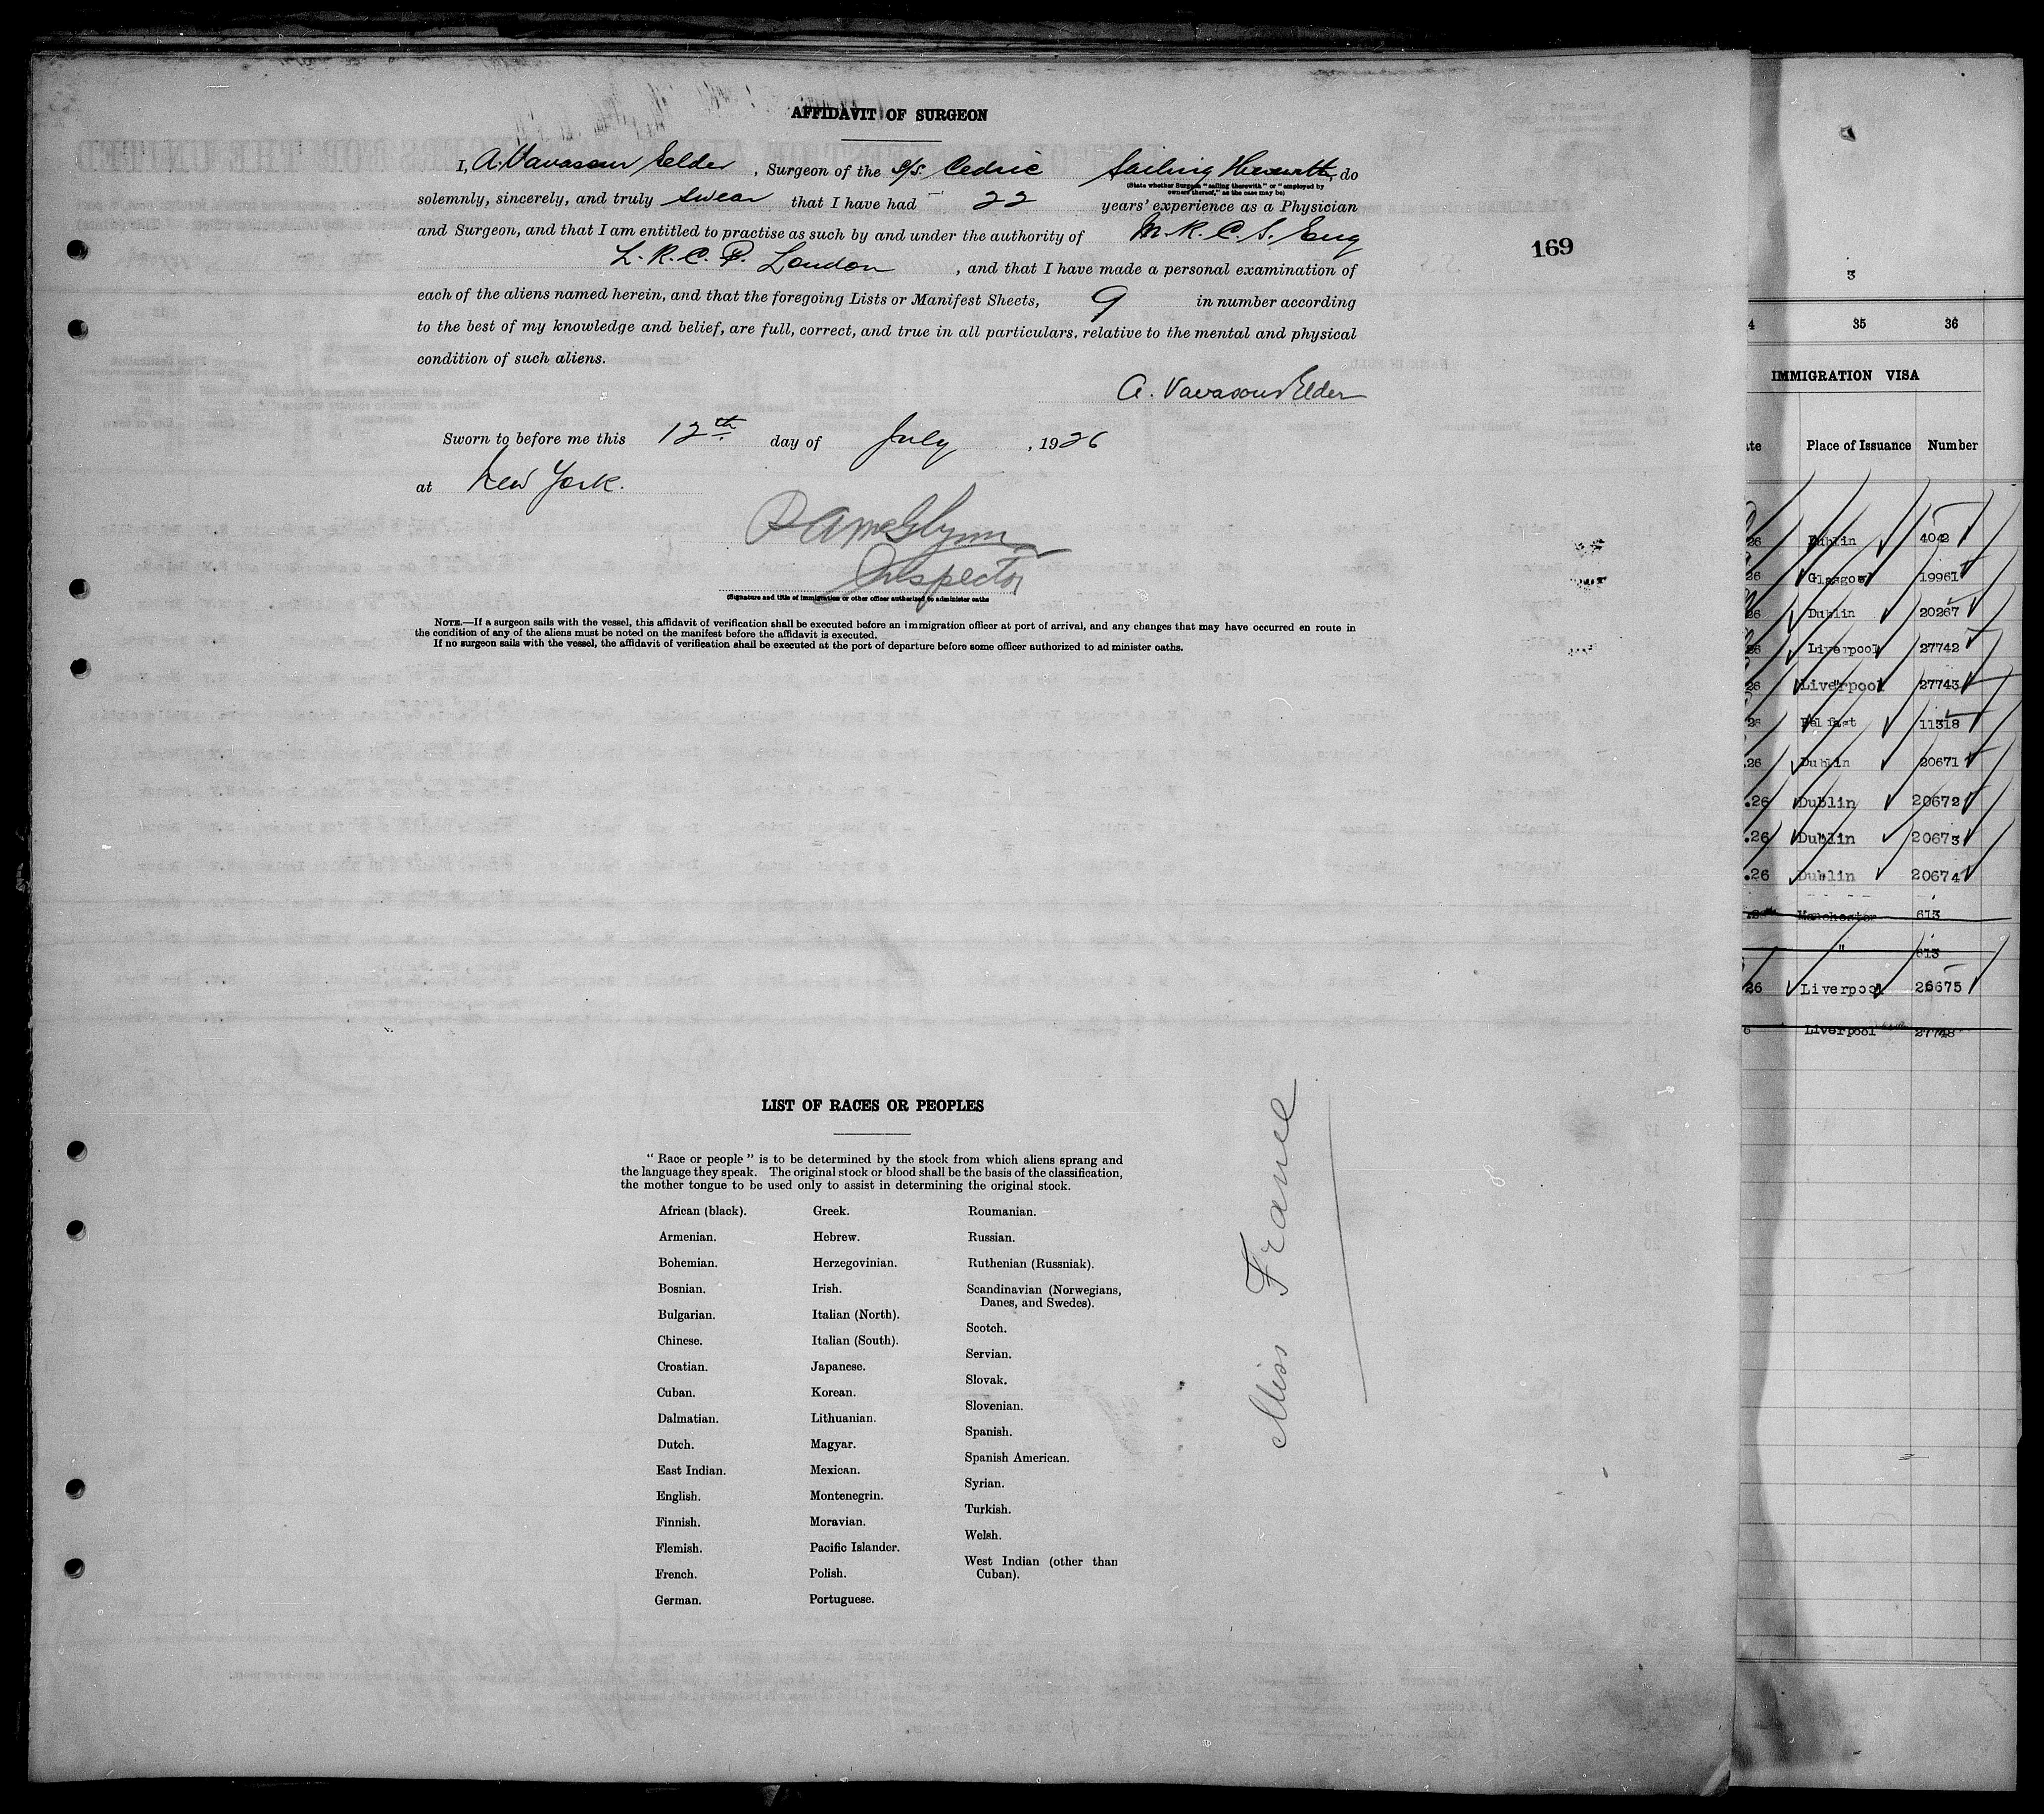 AFFIDAVIT OF SURGEON
I, A. Vavasour Elder, Surgeon of the S/S. Cedric Sailing Therewith, do
(State whether Surgeon "sailing therewith" or "employed by
owners thereof," as the case may be)
solemnly, sincerely, and truly swear that I have had 22 years' experience as a Physician
and Surgeon, and that I am entitled to practise as such by and under the authority of M.R.C.S. Eng
L.R.C.P. London, and that I have made a personal examination of
each of the aliens named herein, and that the foregoing Lists or Manifest Sheets, 9 in number according
to the best of my knowledge and belief, are full, correct, and true in all particulars, relative to the mental and physical
condition of such aliens.
A. Vavasour Elder
Sworn to before me this 12th day of July, 1926
at New York.
McGlynn
Inspector
(Signature and title of immigration or other officer authorized to administer oaths
NOTE.—If a surgeon sails with the vessel, this affidavit of verification shall be executed before an immigration officer at port of arrival, and any changes that may have occurred en route in
the condition of any of the aliens must be noted on the manifest before the affidavit is executed.
If no surgeon sails with the vessel, the affidavit of verification shall be executed at the port of departure before some officer authorized to ad minister oaths.
169
LIST OF RACES OR PEOPLES
"Race or people" is to be determined by the stock from which aliens sprang and
the language they speak. The original stock or blood shall be the basis of the classification,
the mother tongue to be used only to assist in determining the original stock.
African (black).
Armenian.
Bohemian.
Bosnian.
Bulgarian.
Chinese.
Croatian.
Cuban.
Dalmatian.
Dutch.
East Indian.
English.
Finnish.
Flemish.
French.
German.
Greek.
Hebrew.
Herzegovinian.
Irish.
Italian (North).
Italian (South).
Japanese.
Korean.
Lithuanian.
Magyar.
Mexican.
Montenegrin.
Moravian.
Pacific Islander.
Polish.
Portuguese.
Roumanian.
Russian.
Ruthenian (Russniak).
Scandinavian (Norwegians,
Danes, and Swedes).
Scotch.
Servian.
Slovak.
Slovenian.
Spanish.
Spanish American.
Syrian.
Turkish.
Welsh.
West Indian (other than
Cuban).
Miss France
3
4 35 36
IMMIGRATION VISA
Place of Issuance Number
26 Dublin 4042
26 Glasgow 19961
26 Dublin 20267
26 Liverpool 27742
26 Liverpool 27743
26 Belfast 11318
.26 Dublin 20671
.26 Dublin 20672
.26 Dublin 20673
.26 Dublin 20674
Manchester 613
" 613
26 Liverpool 26675
6 Liverpool 27748